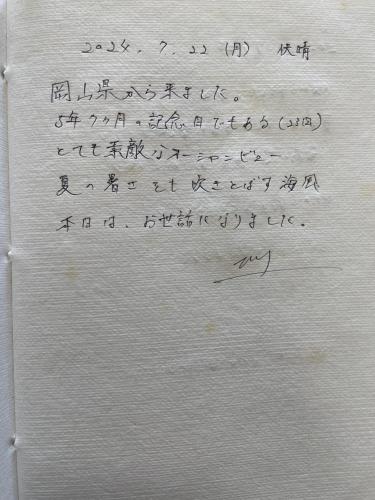 2024.7.22 (月) 快晴
岡山県から来ました。
5年7ヶ月の記念日でもある(23回)
とても素敵なオーシャンビュー
夏の暑さをも吹きとばす海風
本日は、お世話になりました。